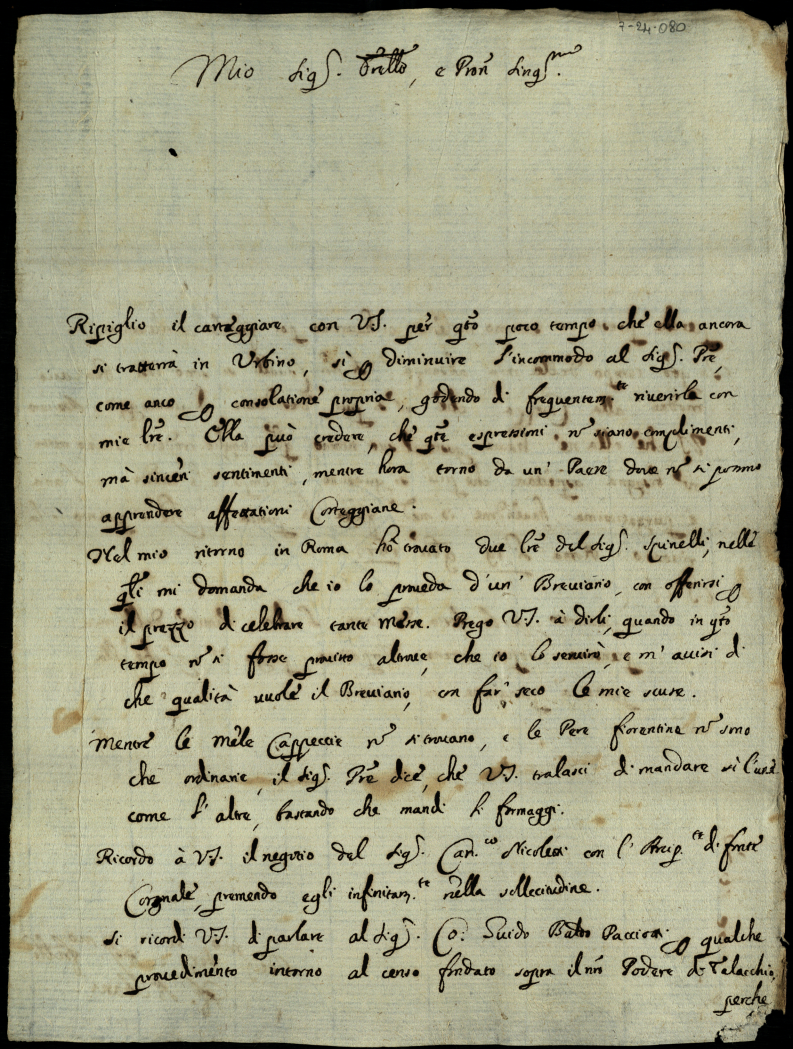 7-24-080
Mio Sig.r Frello, e Pron Sing.mo
Ripiglio il carteggiare con VS. per qto poco tempo che ella ancora
si tratterrà in Urbino, sì p diminuire l'incommodo al Sig.r Pre,
come anco p consolatione propriae, godendo di frequentem.te riverirla con
mie lre. Ella può credere, che qte espressioni nō siano complimenti,
mà sinceri sentimenti, mentre hora torno da un' Paese dove nō si possono
apprendere affettationi Corteggiane.
Nel mio ritorno in Roma hò trovato due lre del Sig.r Spinelli, nelle
qli mi domanda che io lo proveda d'un' Breviario, con offerirsi p
il prezzo di celebrare tante Messe. Prego VS. à dirli, quando in qto
tempo nō si fosse provisto altrove, che io lo servirò, e m'avvisi di
che qualità vuole il Breviario, con far' seco le mie scuse.
Mentre le Mele Cappeccie nō si trovano, e le Pere fiorentine nō sono
che ordinarie, il Sig.r Pre dice, che VS. tralasci di mandare sì l'une
come l'altre, bastando che mandi li formaggi.
Ricordo à VS. il negotio del Sig.r Can.co Nicoletti con l'Arcip.te di fonte
Corgnale, premendo egli infinitam.te nella sollecitudine.
Si ricordi VS. di parlare al Sig.r Co: Guido Baldo Pacciotti p qualche
provedimento intorno al censo fondato sopra il nro Podere di Talacchio,
perche